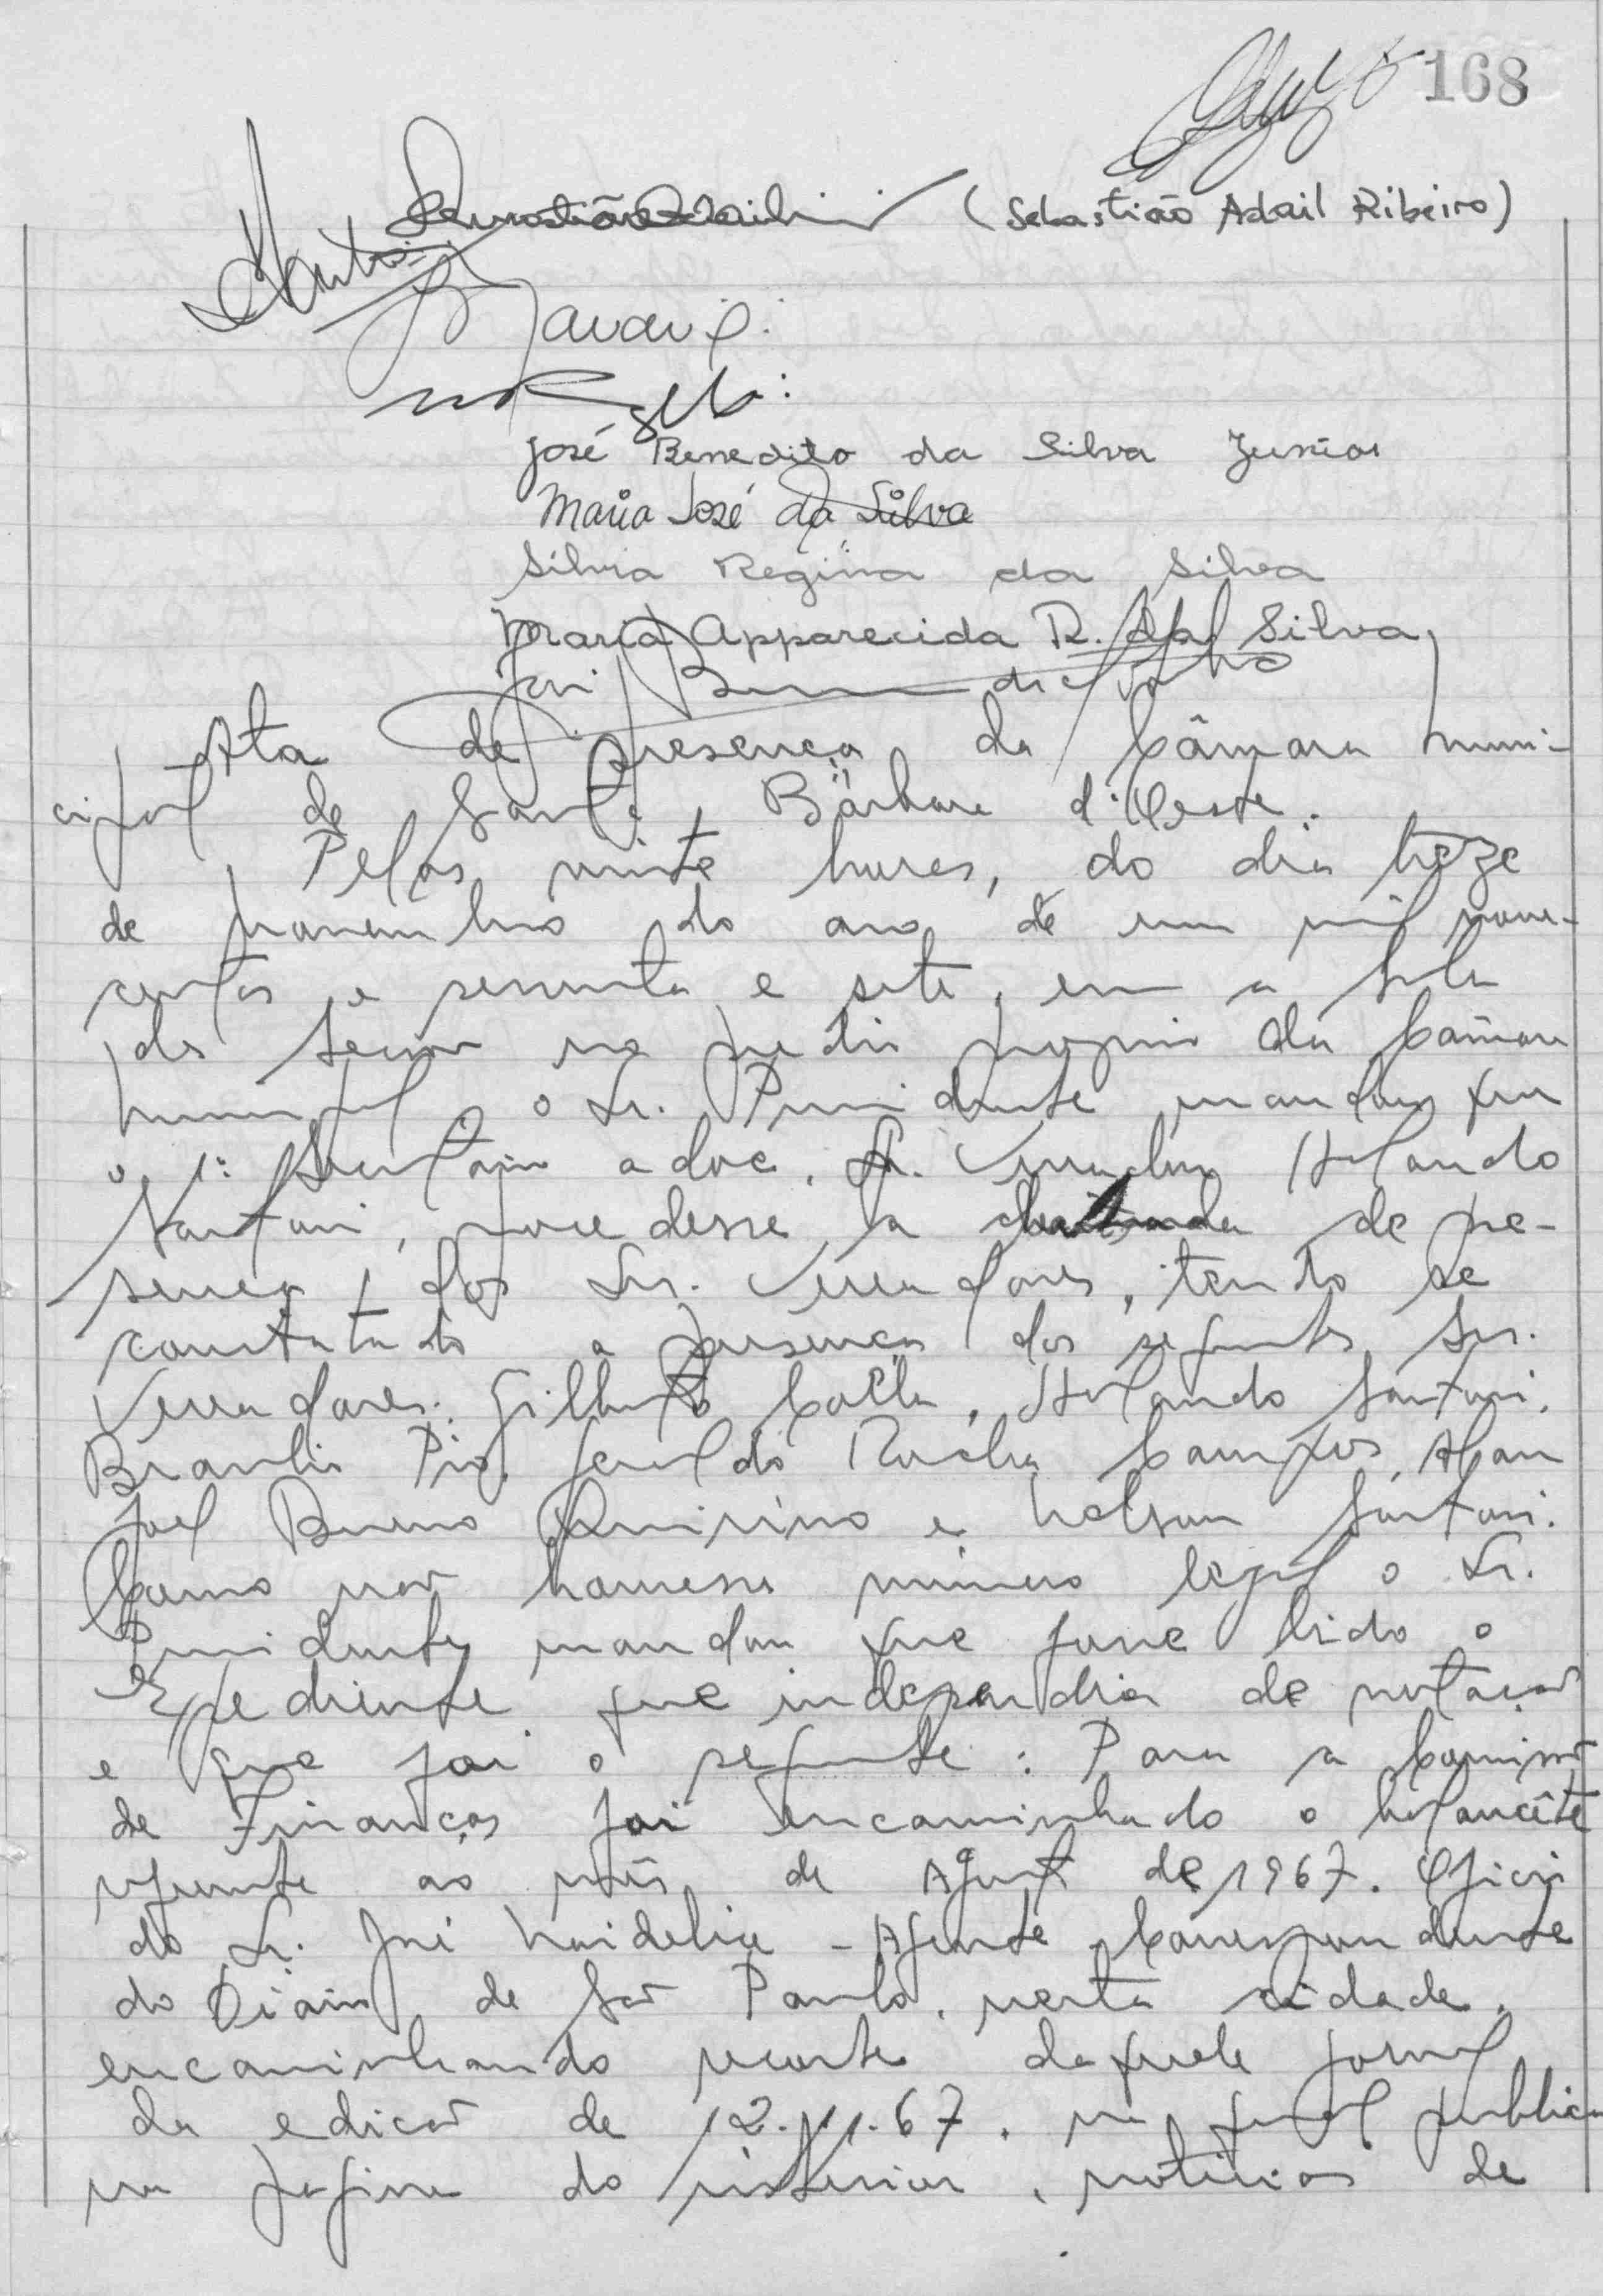 168
(Sebastião Adail Ribeiro)
José Benedito da Silva Junior
Maria José da Silva
Silvia Regina da Silva
Maria Apparecida R. da Silva
Ata de presença da Câmara Muni-
cipal de Santa Bárbara d'Oeste.
Pelas vinte horas, do dia treze
de novembro do ano de um mil nove-
centos e sessenta e sete, em a Sala
das Sessões no predio proprio da Câmara
Municipal o Sr. Presidente mandou que
o 1º Secretário adoc, Sr. Vereador Holando
Santoni, procedesse a chamada de pre-
sença dos Srs. Vereadores, tendo se
constatado a presença dos seguintes Srs.
Vereadores: Gilberto Colla, Holando Santoni,
Braulio Pio, Geraldo Rocha Campos, Alan
Joel Bueno Quirino e Nelson Santoni.
Como não houvesse número legal o Sr.
Presidente mandou que fosse lido o
Expediente que independia de votação
e que foi o seguinte: Para a Comissão
de Finanças foi encaminhado o balancête
referente ao mês de Agosto de 1967. Oficio
do Sr. José - Agente Correspondente
do Diario de São Paulo, nesta cidade,
encaminhando recorte daquele jornal
da edição de 12.11.67, no qual publica
na pagina do interior, noticias de